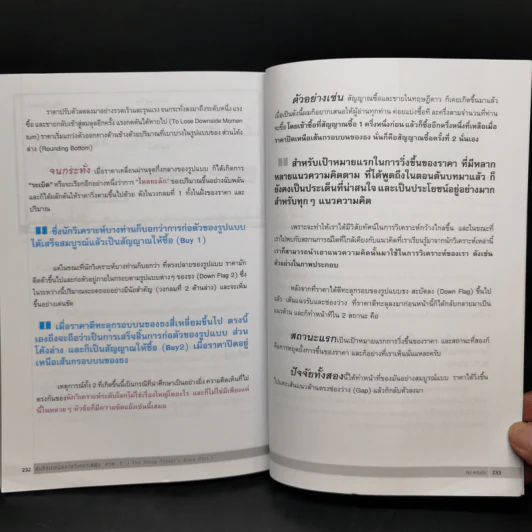 ราคาปรับตัวลดลงมาอย่างรวดเร็วและรุนแรง จนกระทั่งลงมาถึงระดับหนึ่ง แรง
ซื้อ และขายกลับเข้าสู่สมดุลอีกครั้ง แรงกดดันได้หายไป (To Lose Downside Momen
tum) ราคาเริ่มแกว่งตัวออกทางด้านข้างด้วยปริมาณที่เบาบางในรูปแบบของ ส่วนโค้ง
ล่าง (Rounding Bottom)
จนกระทั่ง เมื่อราคาเคลื่อนผ่านจุดกึ่งกลางของรูปแบบ ก็ได้เกิดการ
"ระเบิด" หรือจะเรียกอีกอย่างหนึ่งว่าการ "ไหลทะลัก" ของปริมาณขึ้นอย่างฉับพลัน
และก็ได้ผลักดันให้ราคาวิ่งตามขึ้นไปด้วย ดังในวงกลมที่ 1 ทั้งในฝั่งของราคา และ
ปริมาณ
ซึ่งนักวิเคราะห์บางท่านก็บอกว่าการก่อตัวของรูปแบบ
ได้เสร็จสมบูรณ์แล้วเป็นสัญญาณให้ซื้อ (Buy 1)
แต่ในขณะที่นักวิเคราะห์บางท่านก็บอกว่า ที่ตรงปลายของรูปแบบ ราคามัก
ดีดตัวขึ้นไปและก่อตัวอยู่ภายในกรอบตามรูปแบบต่างๆ ของธง (Down Flag 2) ซึ่ง
ในระหว่างนี้ปริมาณจะลดถอยอย่างมีนัยสำคัญ (วงกลมที่ 2 ด้านล่าง) และจะเพิ่ม
ขึ้นอย่างเด่นชัด
เมื่อราคาตีทะลุกรอบบนของธงสี่เหลี่ยมขึ้นไป ตรงนี้
เองถึงจะถือว่าเป็นการเสร็จสิ้นการก่อตัวของรูปแบบ ส่วน
โค้งล่าง และก็เป็นสัญญาณให้ซื้อ (Buy2) เมื่อราคาปิดอยู่
เหนือเส้นกรอบบนของธง
เหตุการณ์ทั้ง 2 ที่เกิดขึ้นนี้เป็นกรณีที่น่าศึกษาเป็นอย่างยิ่ง ความคิดเห็นที่ไม่
ตรงกันของนักวิเคราะห์ระดับโลกไม่ใช่เรื่องใหญ่โตอะไร และก็ไม่ใช่มีเพียงแค่
นี้ในหลายๆ หัวข้อก็มีความขัดแย้งเช่นนี้เสมอ
232
ตัวอย่างเช่น สัญญาณซื้อและขายในทฤษฎีดาว ก็เคยเกิดขึ้นมาแล้ว
เมื่อเป็นดังนี้ผมก็อยากเสนอให้ผู้อ่านทุกท่าน ค่อยแบ่งซื้อที่ ละครึ่งตามจำนวนที่ท่าน
จะซื้อ โดยเข้าซื้อที่สัญญาณซื้อ 1 ครึ่งหนึ่งก่อน แล้วก็ซื้ออีกครึ่งหนึ่งที่เหลือเมื่อ
ราคาปิดเหนือเส้นกรอบบนของธง นั่นก็คือสัญญาณซื้อครั้งที่ 2 นั่นเอง
สำหรับเป้าหมายแรกในการวิ่งขึ้นของราคา ที่มีหลาก
หลายแนวความคิดตาม ที่ได้พูดถึงในตอนต้นบทมาแล้ว ก็
ยังคงเป็นประเด็นที่น่าสนใจ และเป็นประโยชน์อยู่อย่างมาก
สำหรับทุกๆ แนวความคิด
เพราะจะทำให้เราได้มีวิสัยทัศน์ในการวิเคราะห์กว้างไกลขึ้น และในขณะที่
เราก็สามารถนำเอาแนวความคิดนั้นมาใช้ในการวิเคราะห์ของเรา ดังเช่น
ตัวอย่างในภาพประกอบ
หลังจากที่ราคาได้ตีทะลุกรอบของรูปแบบธง สะบัดลง (Down Flag) ขึ้นไป
แล้ว เส้นแนวรับและช่องว่าง ที่ราคาตีทะลุลงมาก่อนหน้านี้ก็ได้กลับกลายมาเป็น
แนวต้าน และก็ทำหน้าที่ใน 2 สถานะ คือ
สถานะแรกเป็นเป้าหมายแรกการวิ่งขึ้นของราคา และสถานะที่สองก็
คือการหยุดยั้งการขึ้นของราคา และก็อย่างที่เราเห็นนั่นแหละครับ
ปัจจัยทั้งสองนี้ได้ทำหน้าที่ของมันอย่างสมบูรณ์แบบ ราคาได้วิ่งขึ้น
ไปแตะเส้นแนวต้านตรงช่องว่าง (Gap) แล้วก็กลับตัวลงมา
233